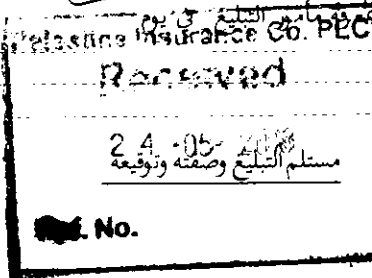 مأمور التبليغ في يوم
Palestine Insurance Co. PLC
Received
2 4 -05-
مستلم التبليغ وصفته وتوقيعه
No.